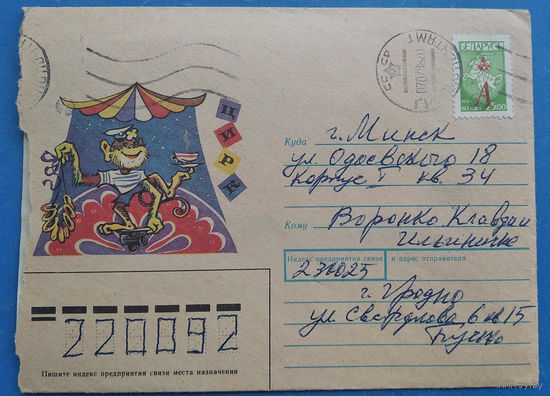 БЕЛАРУСЬ
5.00
ЦИРК
Куда г. Минск
ул. Одоевского 18
корпус I кв. 34
Кому Воронко Клавдии
Ильиничне
Индекс предприятия связи и адрес отправителя
230025
г. Гродно
ул. Свердлова, 6 кв 15
Пучко
220092
Пишите индекс предприятия связи места назначения